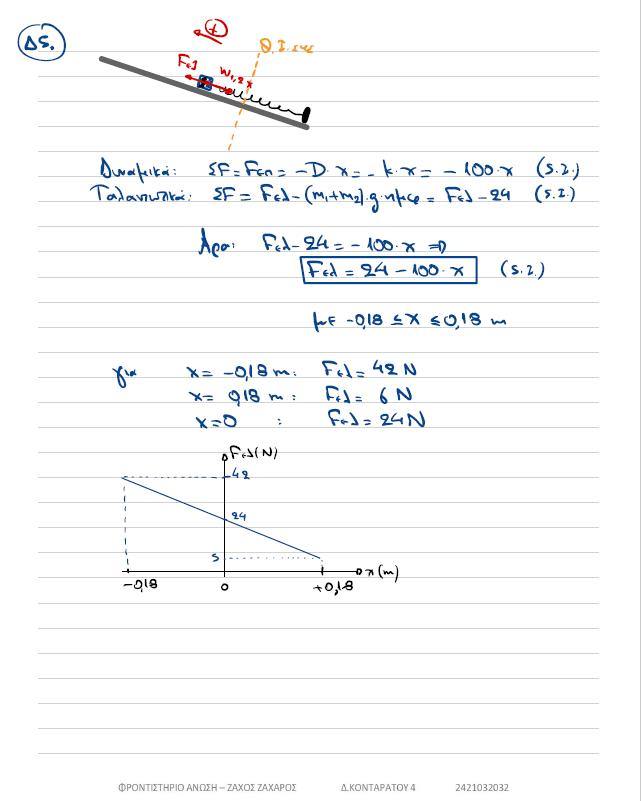 Δ5.
+
Θ.Ι. συς
Fελ
W1,2x
Δυναμικά: ΣF = Fεπ = -D·x = -k·x = -100·x (S.I.)
Ταλαντωτικά: ΣF = Fελ - (m1+m2)·g·ημφ = Fελ - 24 (S.I.)
Άρα: Fελ - 24 = -100·x ⇒
Fελ = 24 - 100·x (S.I.)
με -0,18 ≤ x ≤ 0,18 m
για x = -0,18 m: Fελ = 42 N
x = 0,18 m: Fελ = 6 N
x = 0 : Fελ = 24 N
Fελ (N)
42
24
5
x (m)
-0,18 0 +0,18
ΦΡΟΝΤΙΣΤΗΡΙΟ ΑΝΩΣΗ – ΖΑΧΟΣ ΖΑΧΑΡΟΣ Δ.ΚΟΝΤΑΡΑΤΟΥ 4 2421032032